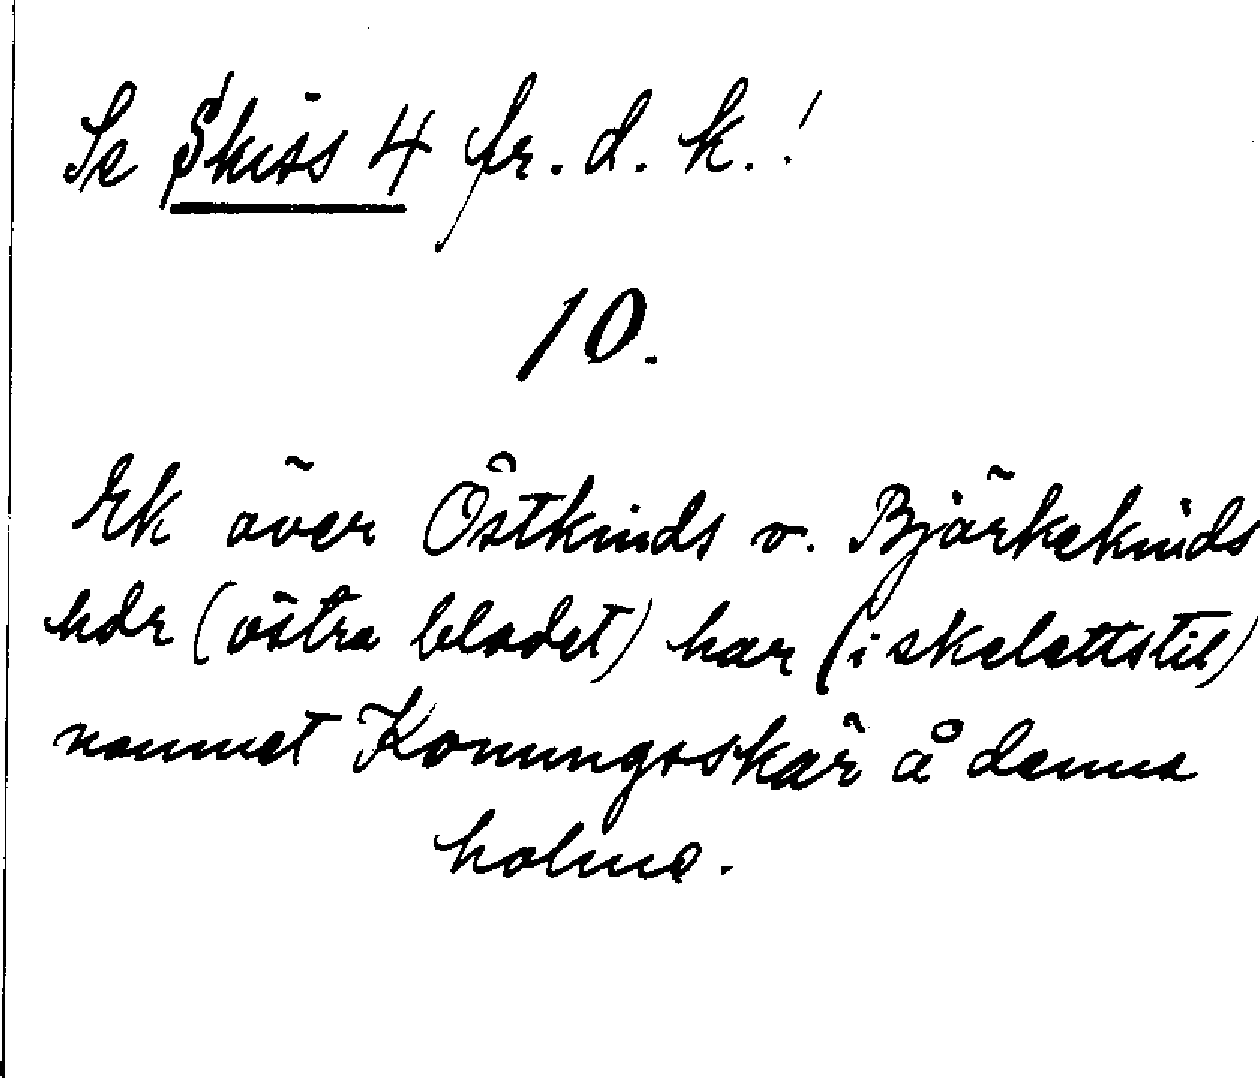 Se Skiss 4 fr. d. k.!
10.
Ek över Östkinds o. Björkekinds
hdr (östra bladet) har (i skelettstil)
namnet Konungsskär å denna
holme.